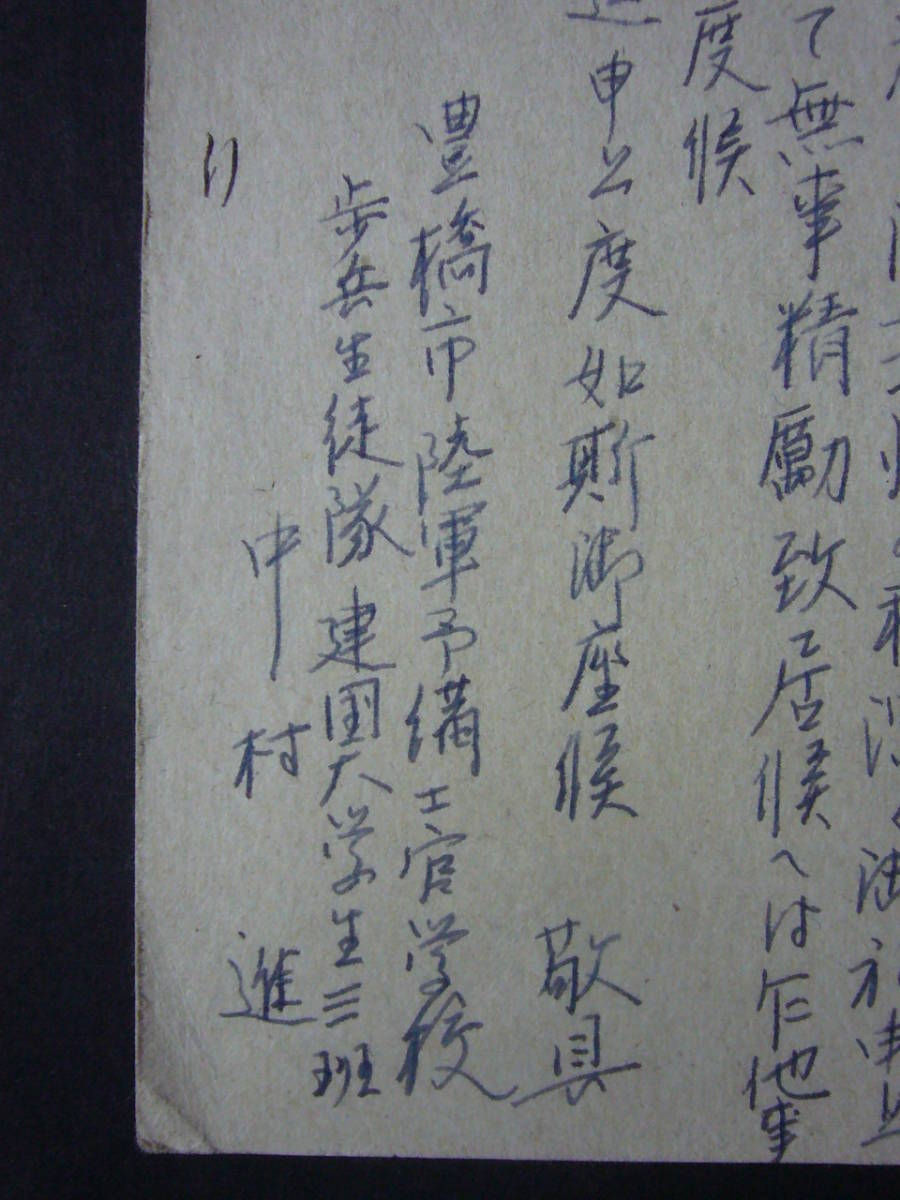 て無事精励致し居候へは乍他事
度候
申上度如斯御座候 敬具
豊橋市陸軍予備士官学校
歩兵生徒隊建国大学生三班
中村進